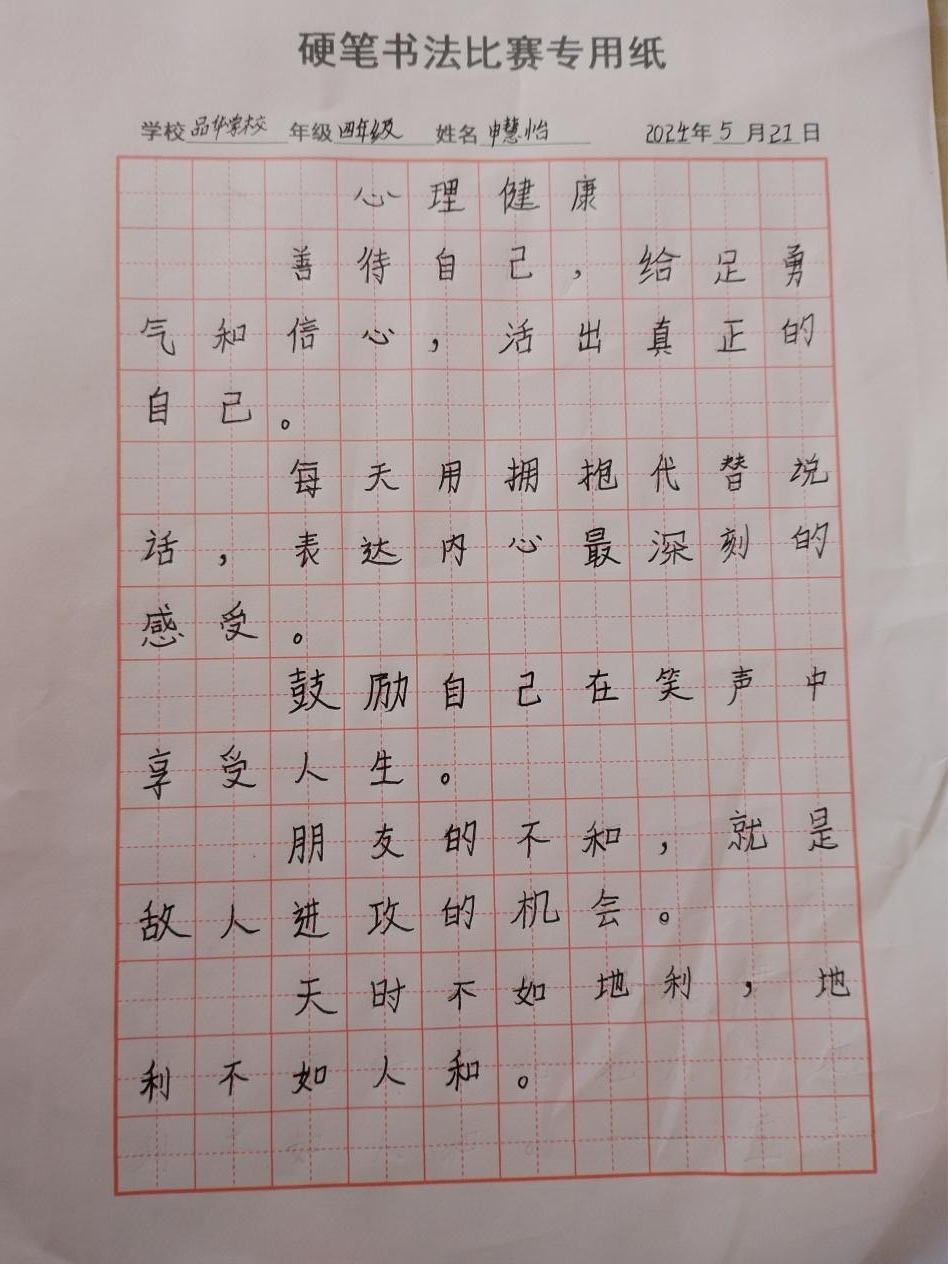 硬笔书法比赛专用纸
学校 品华学校 年级 四年级 姓名 申慧怡 2024年 5 月 21 日
心理健康
善待自己，给足勇
气和信心，活出真正的
自己。
每天用拥抱代替说
话，表达内心最深刻的
感受。
鼓励自己在笑声中
享受人生。
朋友的不和，就是
敌人进攻的机会。
天时不如地利，地
利不如人和。